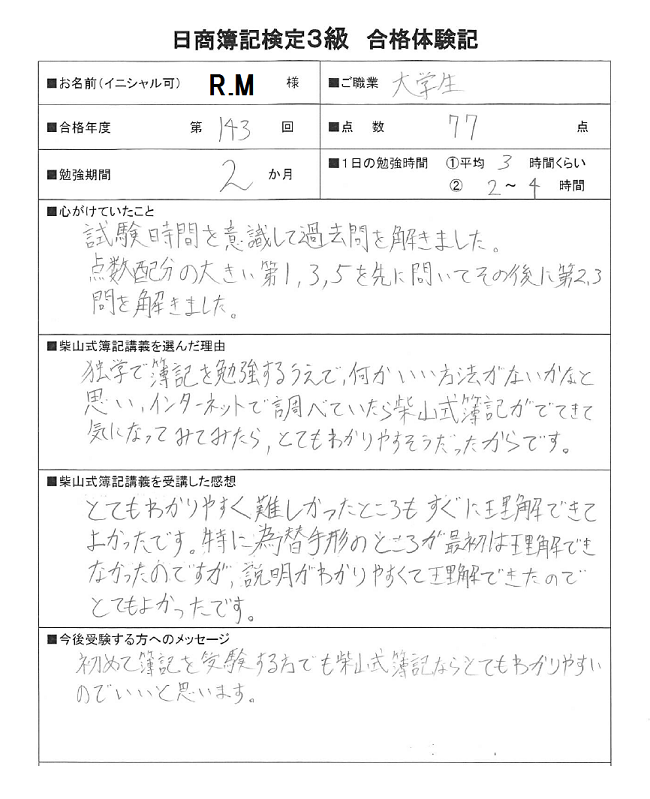 日商簿記検定3級 合格体験記
■お名前(イニシャル可) R.M 様 ■ご職業 大学生
■合格年度 第 143 回 ■点 数 77 点
■勉強期間 2 か月 ■1日の勉強時間 ①平均 3 時間くらい
② 2〜4 時間
■心がけていたこと
試験時間を意識して過去問を解きました。
点数配分の大きい第1,3,5を先に問いてその後に第2,3
問を解きました。
■柴山式簿記講義を選んだ理由
独学で簿記を勉強するうえで、何かいい方法がないかなと
思い、インターネットで調べていたら柴山式簿記がでてきて
気になってみてみたら、とてもわかりやすそうだったからです。
■柴山式簿記講義を受講した感想
とてもわかりやすく難しかったところもすぐに理解できて
よかったです。特に為替手形のところが最初は理解でき
なかったのですが、説明がわかりやすくて理解できたので
とてもよかったです。
■今後受験する方へのメッセージ
初めて簿記を受験する方でも柴山式簿記ならとてもわかりやすい
のでいいと思います。